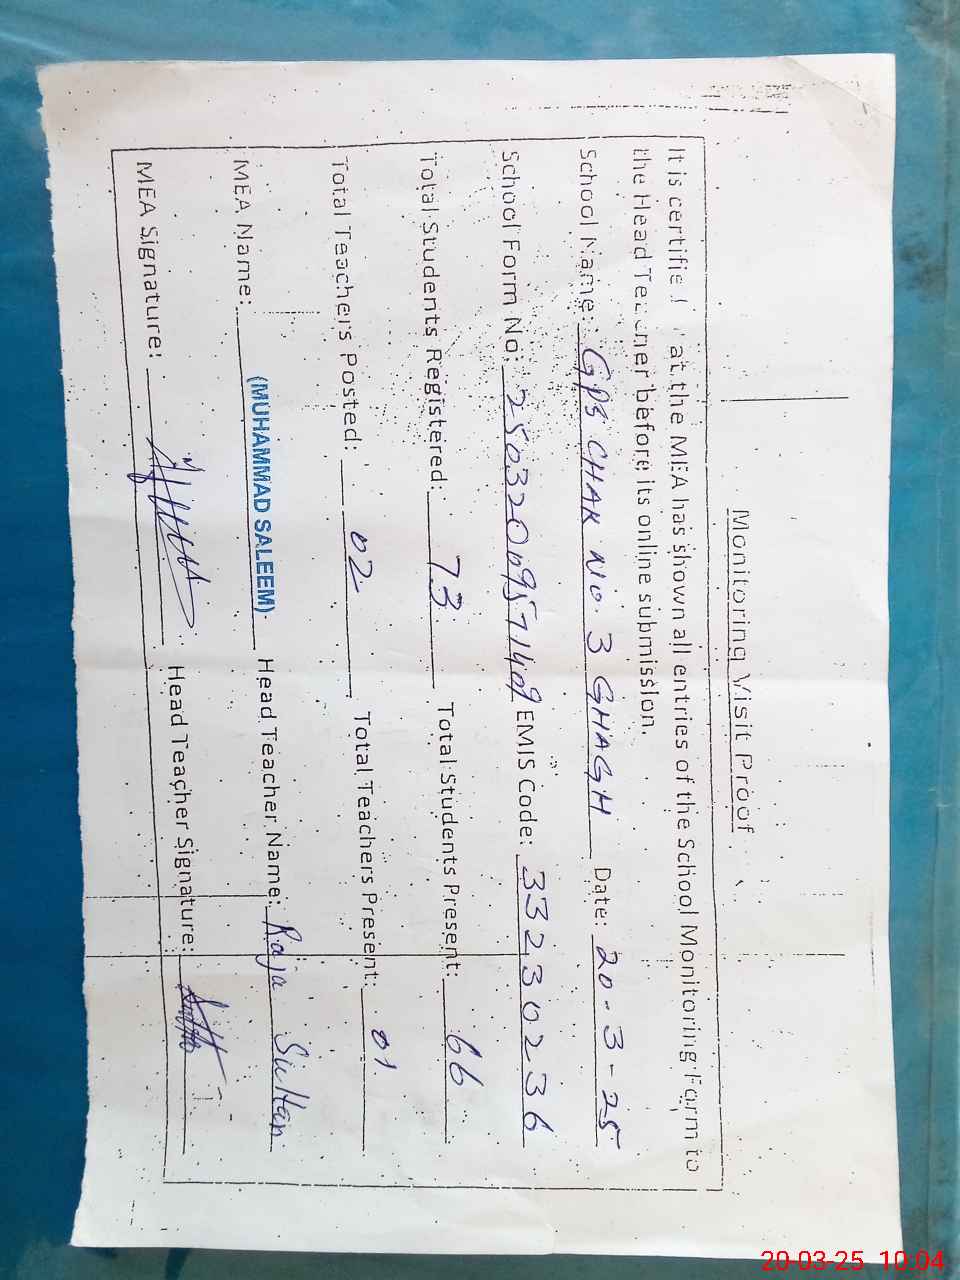 Monitoring Visit Proof
It is certifie at the MEA has shown all entries of the School Monitoring Form to
the Head Teacher before its online submission.
School Name: GPS CHAK NO 3 GHAGH Date: 20-3-25
School Form No: EMIS Code: 33230236
Total Students Registered: 73 Total Students Present: 66
Total Teachers Posted: 02 Total Teachers Present: 01
MEA Name: (MUHAMMAD SALEEM) Head Teacher Name: Raja Sultan
MEA Signature: Head Teacher Signature:
20-03-25 10:04